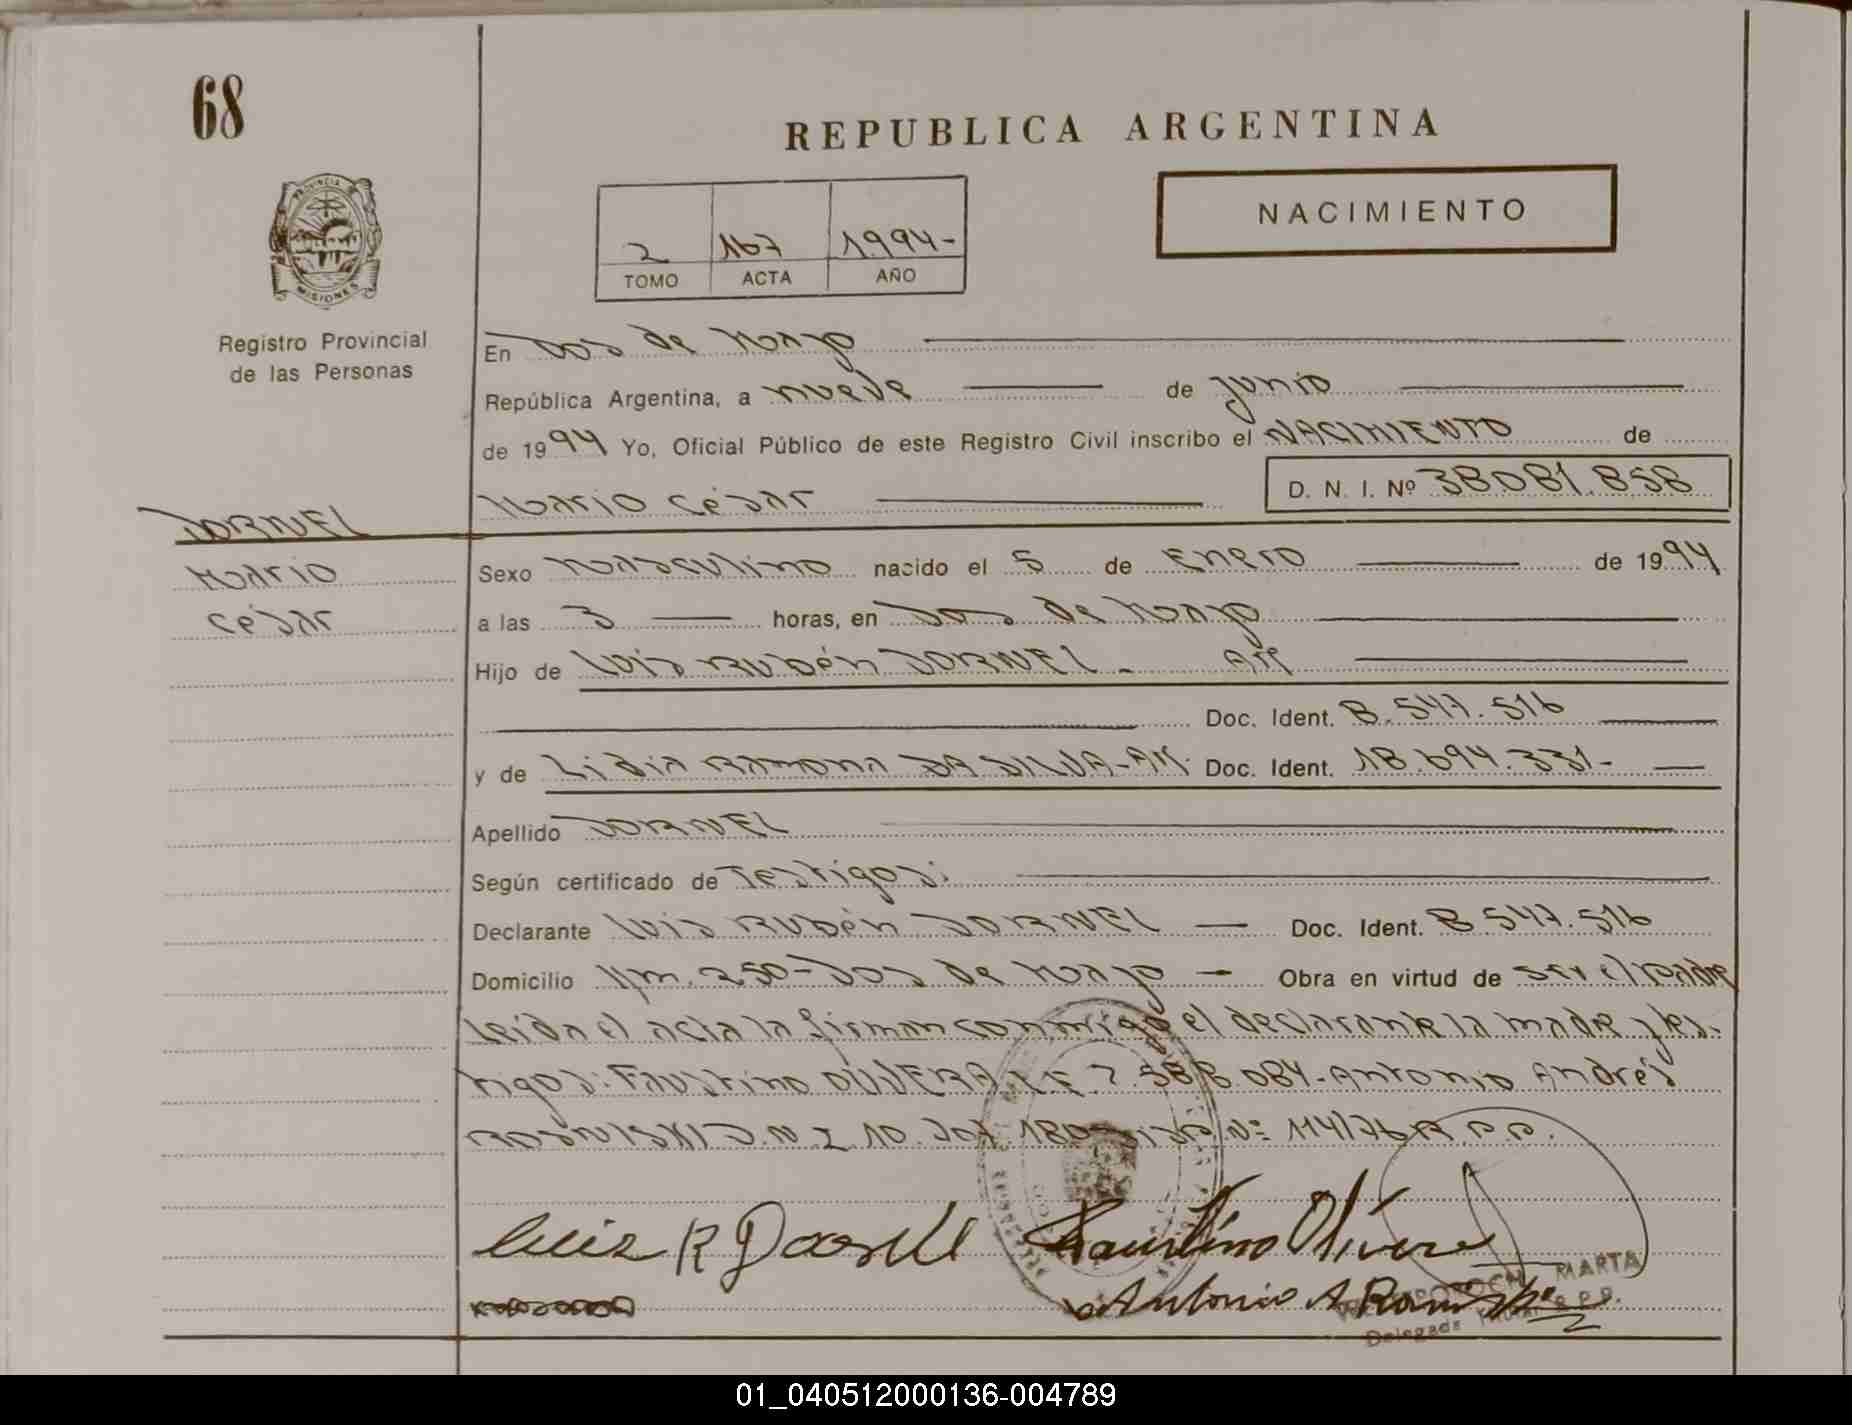 68
REPUBLICA ARGENTINA
NACIMIENTO
2 167 1994-
TOMO ACTA AÑO
PROVINCIA DE
MISIONES
Registro Provincial
de las Personas
En Dos de Mayo
República Argentina, a nueve de junio
de 1994 Yo, Oficial Público de este Registro Civil inscribo el NACIMIENTO de
Mario César D. N. I. Nº 38081.858
DORNEL
Mario
César
Sexo masculino nacido el 5 de Enero de 1994
a las 3 horas, en Dos de Mayo
Hijo de Luis Rubén DORNEL - Arg
Doc. Ident. 8.547.516
y de Lidia Ramona DA SILVA-Ar. Doc. Ident. 18.694.331-
Apellido DORNEL
Según certificado de Testigos:
Declarante Luis Rubén DORNEL Doc. Ident. 8.547.516
Domicilio Km. 250-Dos de Mayo Obra en virtud de ser el padre
Leída el acta la firman conmigo el declarante la madre y tes-
tigos: Faustino OLIVERA L.E 7.588.084-Antonio Andrés
D.N.I 10. Nº 114/76 R.P.P.
Luis R Faustino Olivera
Antonio A
MARTA
Delegada R.P.P.
01_040512000136-004789